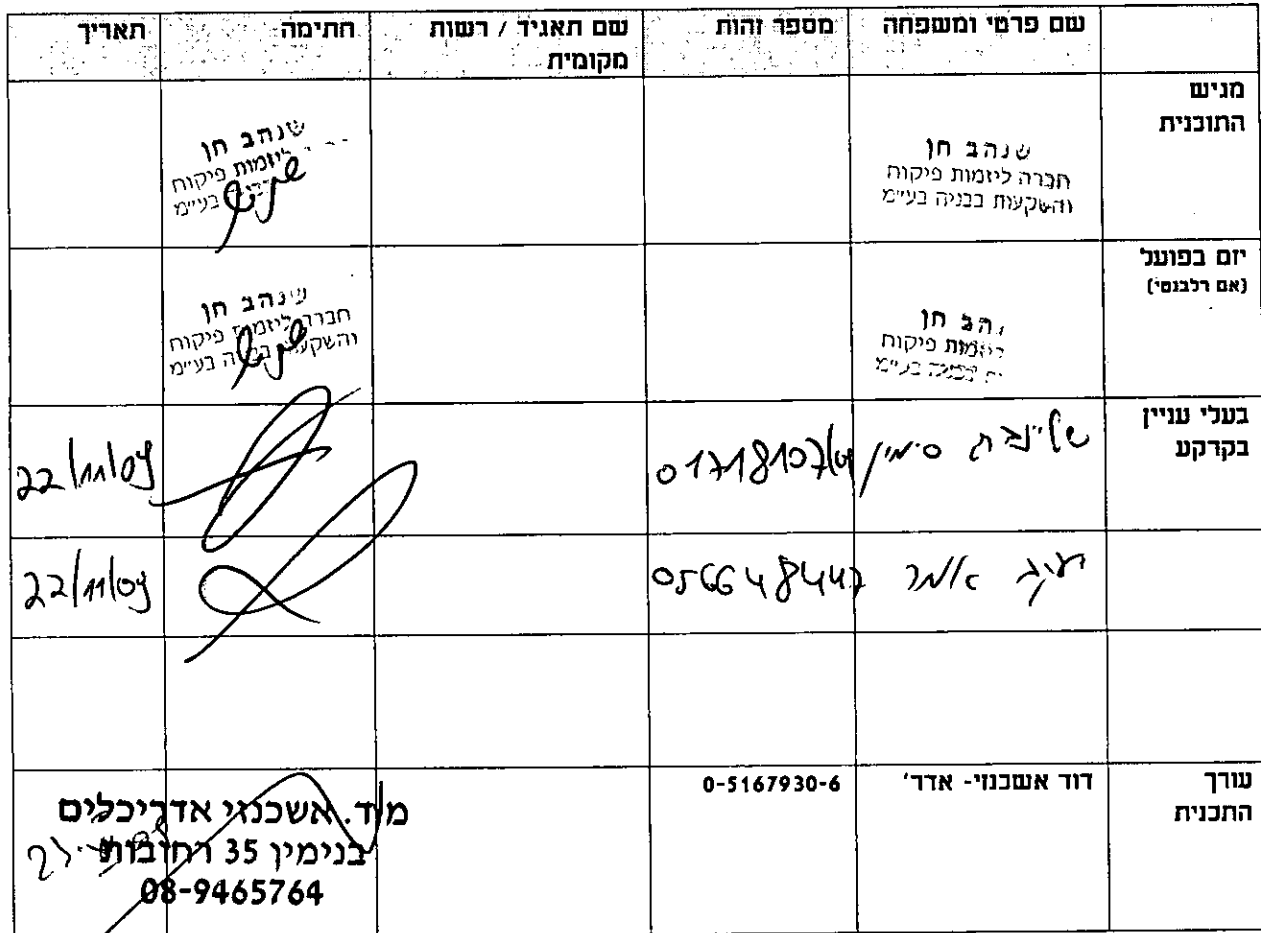 שם פרטי ומשפחה מספר זהות שם תאגיד / רשות חתימה תאריך
מקומית
מגיש
התוכנית
שנהב חן
חברה ליזמות פיקוח
והשקעות בבניה בע״מ
שנהב חן
ליזמות פיקוח
בע״מ
יזם בפועל
(אם רלבנטי)
נהב חן
ליזמות פיקוח
בבניה בע״מ
שנהב חן
חברה ליזמות פיקוח
והשקעות בבניה בע״מ
בעלי עניין
בקרקע
סימין
22/11/09
056648442
22/11/09
עורך
התכנית
דוד אשכנזי- אדר'
0-5167930-6
מ.ד. אשכנזי אדריכלים
בנימין 35 רחובות
08-9465764